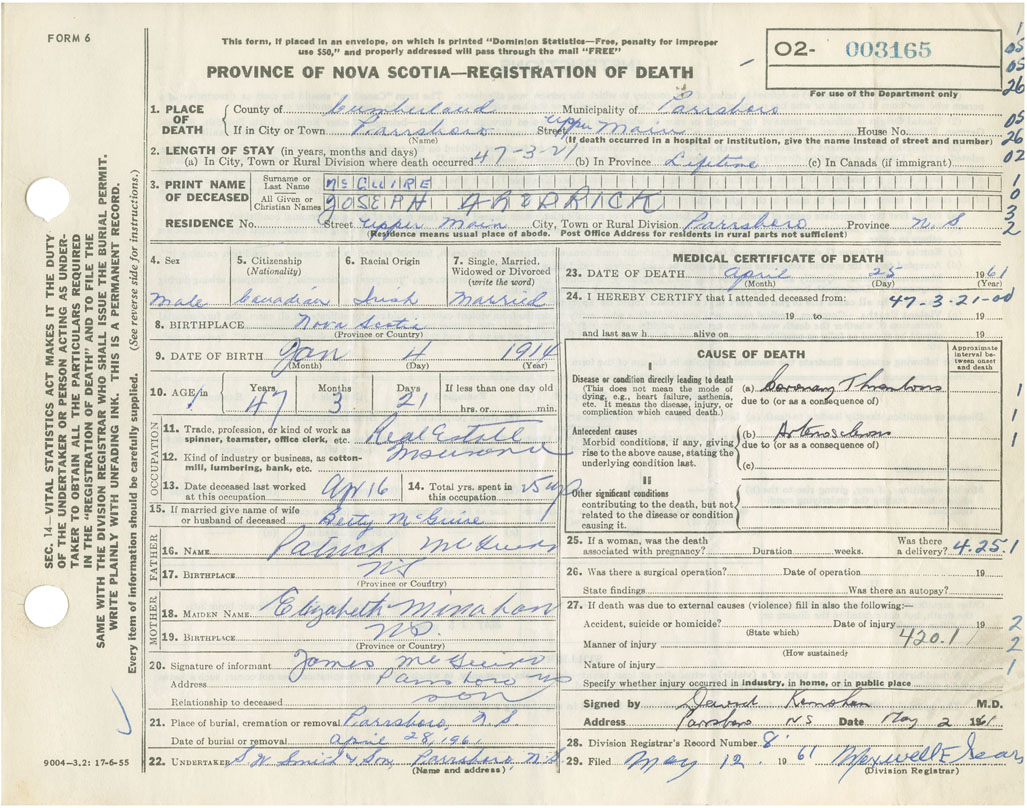 FORM 6
This form, if placed in an envelope, on which is printed "Dominion Statistics—Free, penalty for improper
use $50," and properly addressed will pass through the mail "FREE"
PROVINCE OF NOVA SCOTIA—REGISTRATION OF DEATH
02- 003165
For use of the Department only
1
05
05
26
05
26
02
1
0
3
2
SEC. 14 VITAL STATISTICS ACT MAKES IT THE DUTY
OF THE UNDERTAKER OR PERSON ACTING AS UNDER-
TAKER TO OBTAIN ALL THE PARTICULARS REQUIRED
IN THE "REGISTRATION OF DEATH" AND TO FILE THE
SAME WITH THE DIVISION REGISTRAR WHO SHALL ISSUE THE BURIAL PERMIT.
WRITE PLAINLY WITH UNFADING INK. THIS IS A PERMANENT RECORD.
Every item of information should be carefully supplied. (See reverse side for instructions.)
1. PLACE OF DEATH
County of Cumberland Municipality of Parrsboro
If in City or Town Parrsboro Street Upper Main House No.
(Name) (If death occurred in a hospital or institution, give the name instead of street and number)
2. LENGTH OF STAY (in years, months and days)
(a) In City, Town or Rural Division where death occurred 47-3-21 (b) In Province Lifetime (c) In Canada (if immigrant)
3. PRINT NAME OF DECEASED
Surname or Last Name McGUIRE
All Given or Christian Names JOSEPH
RESIDENCE No. Street Upper Main City, Town or Rural Division Parrsboro Province N.S.
(Residence means usual place of abode. Post Office Address for residents in rural parts not sufficient)
4. Sex
Male
5. Citizenship
(Nationality)
Canadian
6. Racial Origin
Irish
7. Single, Married,
Widowed or Divorced
(write the word)
Married
8. BIRTHPLACE Nova Scotia
(Province or Country)
9. DATE OF BIRTH Jan 4 1914
(Month) (Day) (Year)
10. AGE Years Months Days If less than one day old
47 3 21 hrs. or min.
OCCUPATION
11. Trade, profession, or kind of work as
spinner, teamster, office clerk, etc. Real Estate
12. Kind of industry or business, as cotton-
mill, lumbering, bank, etc. Insurance
13. Date deceased last worked
at this occupation Apr 16
14. Total yrs. spent in
this occupation 25
15. If married give name of wife
or husband of deceased Betty McGuire
FATHER
16. NAME Patrick McGuire
17. BIRTHPLACE NS
(Province or Country)
MOTHER
18. MAIDEN NAME Elizabeth Minahan
19. BIRTHPLACE NS.
(Province or Country)
20. Signature of informant James McGuire
Address Parrsboro NS
Relationship to deceased son
21. Place of burial, cremation or removal Parrsboro, N.S
Date of burial or removal April 28, 1961
22. UNDERTAKER Smith & Son, Parrsboro, N.S.
(Name and address)
9004—3.2: 17-6-55
MEDICAL CERTIFICATE OF DEATH
23. DATE OF DEATH April 25 1961
(Month) (Day) (Year)
24. I HEREBY CERTIFY that I attended deceased from: 47-3-21-00
19 to 19
and last saw h alive on 19
CAUSE OF DEATH
Approximate
interval be-
tween onset
and death
I
Disease or condition directly leading to death
(This does not mean the mode of
dying, e.g., heart failure, asthenia,
etc. It means the disease, injury, or
complication which caused death.)
(a) Coronary Thrombosis
due to (or as a consequence of)
Antecedent causes
Morbid conditions, if any, giving
rise to the above cause, stating the
underlying condition last.
(b) Arteriosclerosis
due to (or as a consequence of)
(c)
II
Other significant conditions
contributing to the death, but not
related to the disease or condition
causing it.
1
1
1
25. If a woman, was the death
associated with pregnancy? Duration weeks. Was there
a delivery? 4.25.1
26. Was there a surgical operation? Date of operation 19
State findings Was there an autopsy?
27. If death was due to external causes (violence) fill in also the following:—
Accident, suicide or homicide? Date of injury 19 2
(State which)
420.1
Manner of injury 2
(How sustained)
Nature of injury 1
Specify whether injury occurred in industry, in home, or in public place
Signed by David M.D.
Address Parrsboro N.S Date May 2 1961
28. Division Registrar's Record Number 8
29. Filed May 12. 1961 Maxwell E
(Division Registrar)